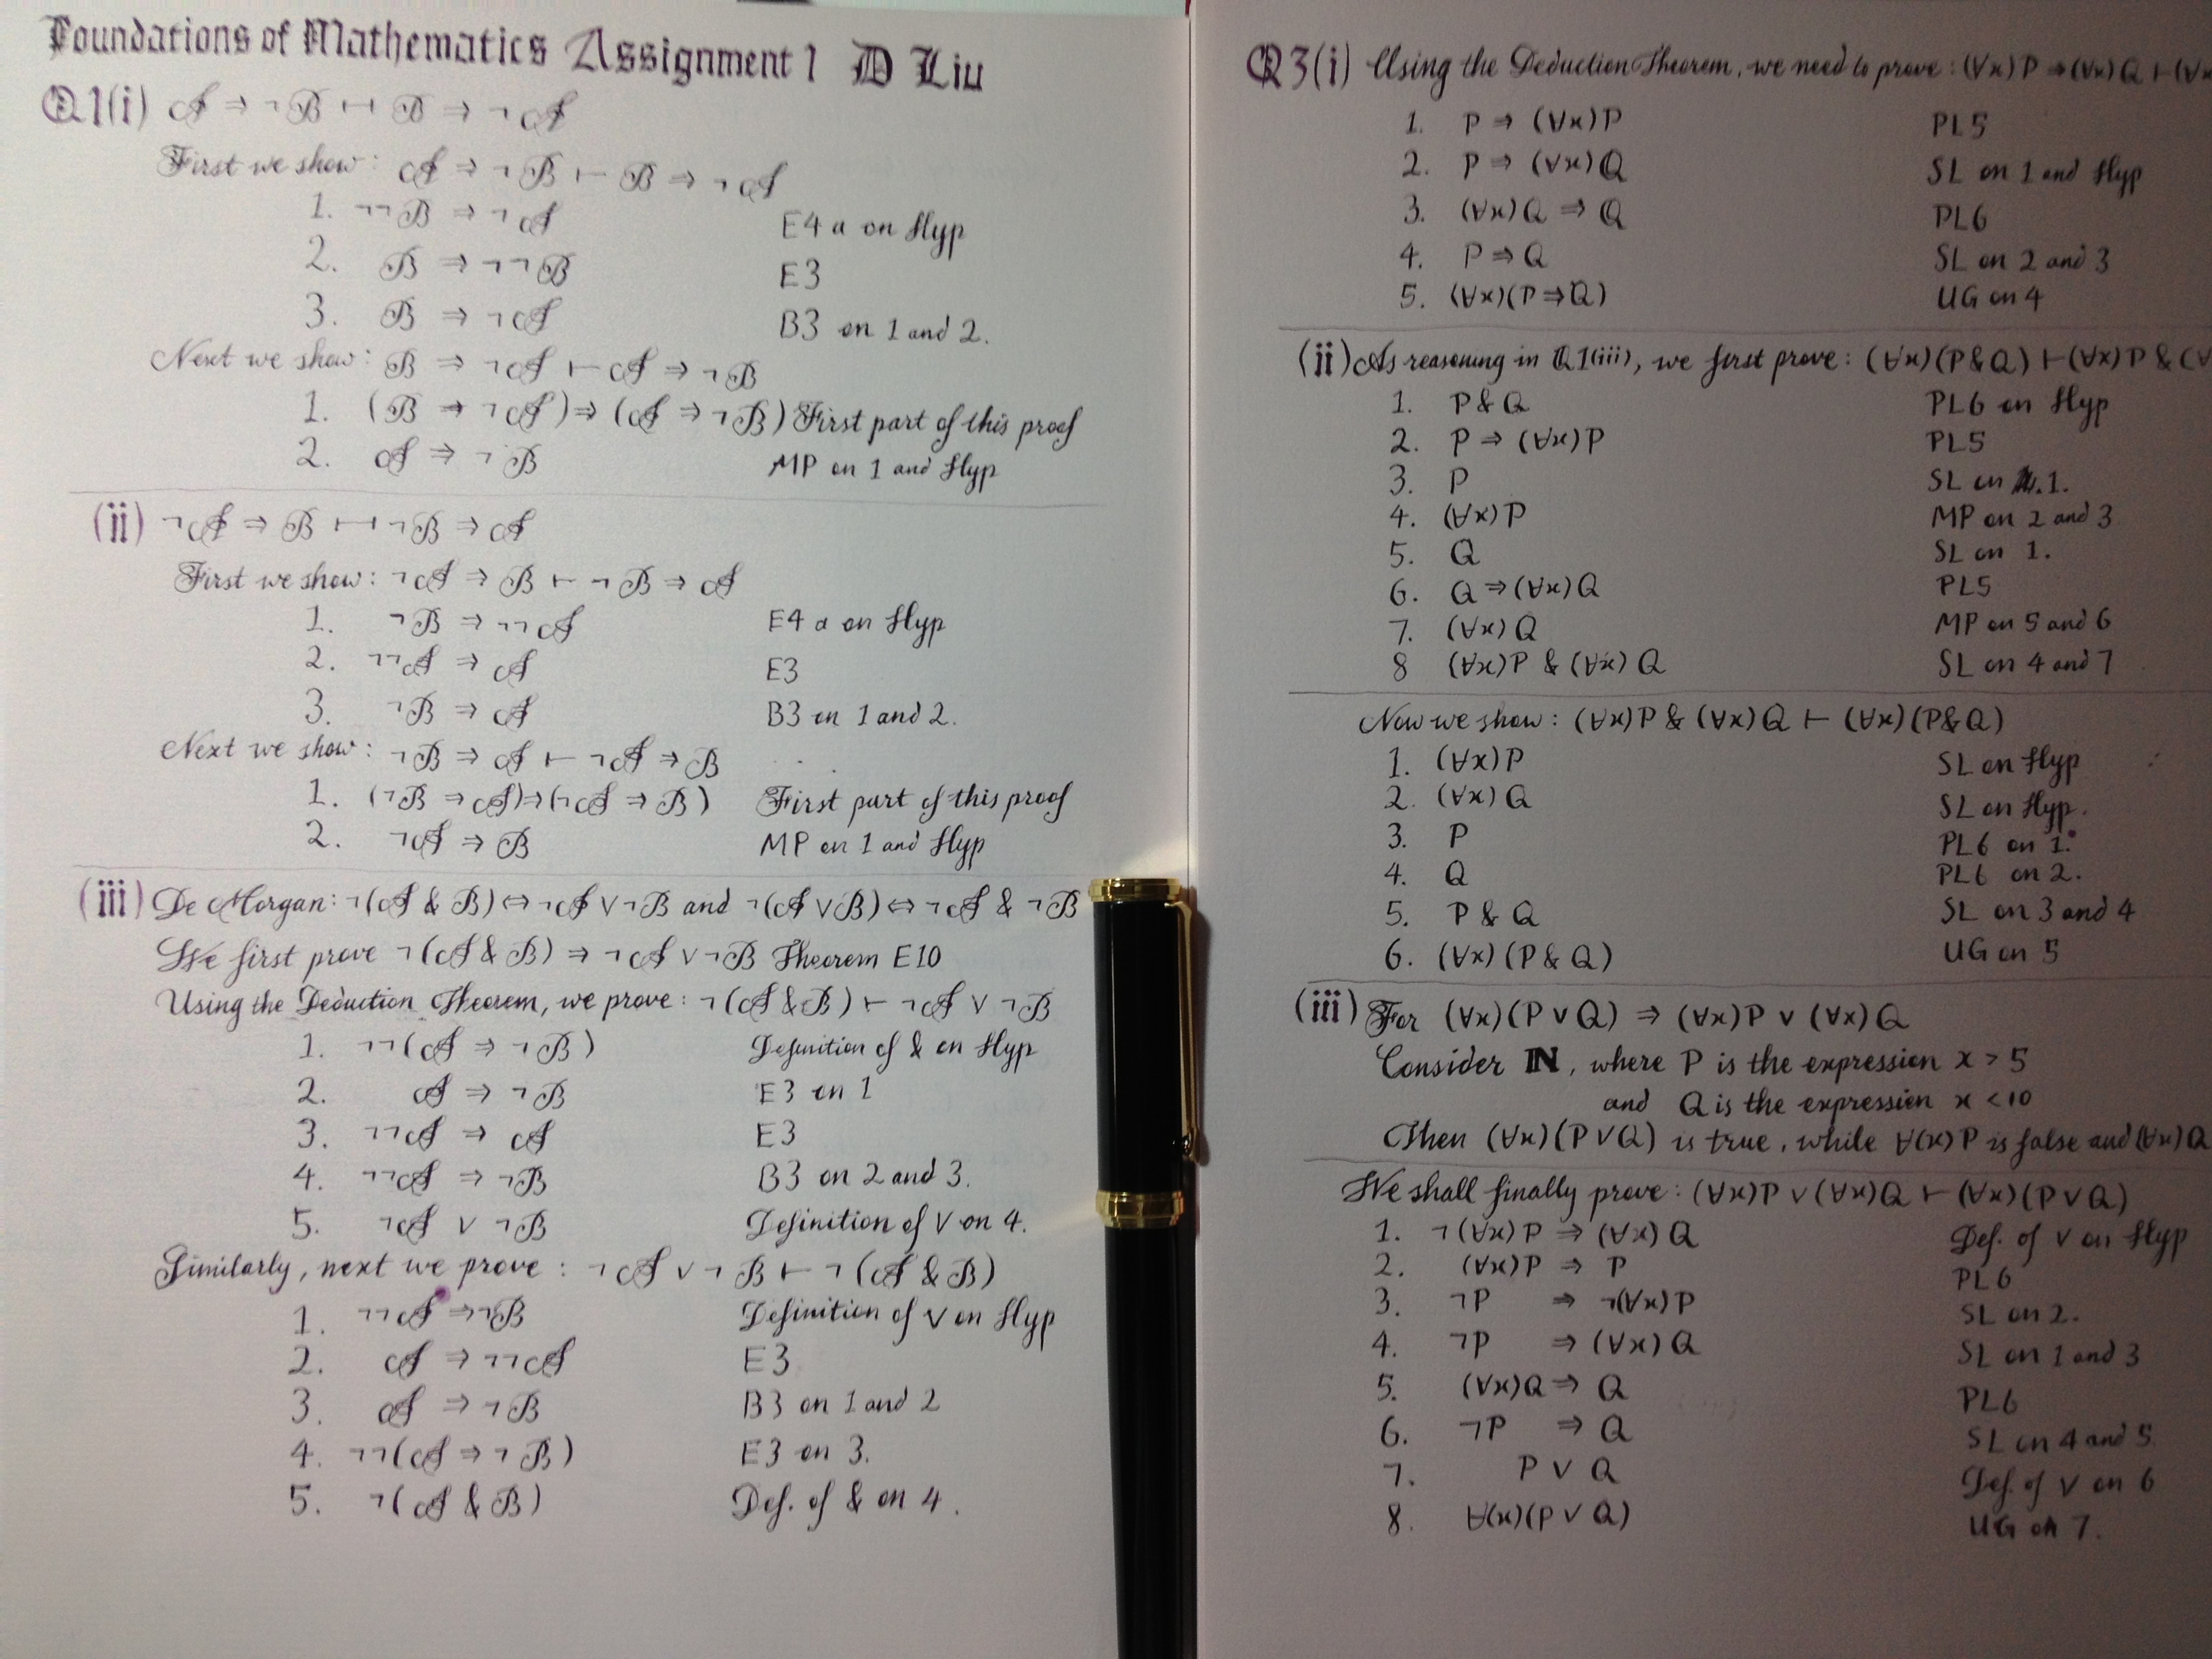 Foundations of Mathematics Assignment 1 D Liu
Q1(i) 𝒜 ⇒ ¬ℬ ⊢⊣ ℬ ⇒ ¬𝒜
First we show: 𝒜 ⇒ ¬ℬ ⊢ ℬ ⇒ ¬𝒜
1. ¬¬ℬ ⇒ ¬𝒜 E4a on Hyp
2. ℬ ⇒ ¬¬ℬ E3
3. ℬ ⇒ ¬𝒜 B3 on 1 and 2.
Next we show: ℬ ⇒ ¬𝒜 ⊢ 𝒜 ⇒ ¬ℬ
1. (ℬ ⇒ ¬𝒜) ⇒ (𝒜 ⇒ ¬ℬ) First part of this proof
2. 𝒜 ⇒ ¬ℬ MP on 1 and Hyp
(ii) ¬𝒜 ⇒ ℬ ⊢⊣ ¬ℬ ⇒ 𝒜
First we show: ¬𝒜 ⇒ ℬ ⊢ ¬ℬ ⇒ 𝒜
1. ¬ℬ ⇒ ¬¬𝒜 E4a on Hyp
2. ¬¬𝒜 ⇒ 𝒜 E3
3. ¬ℬ ⇒ 𝒜 B3 on 1 and 2.
Next we show: ¬ℬ ⇒ 𝒜 ⊢ ¬𝒜 ⇒ ℬ
1. (¬ℬ ⇒ 𝒜) ⇒ (¬𝒜 ⇒ ℬ) First part of this proof
2. ¬𝒜 ⇒ ℬ MP on 1 and Hyp
(iii) De Morgan: ¬(𝒜 & ℬ) ⇔ ¬𝒜 ∨ ¬ℬ and ¬(𝒜 ∨ ℬ) ⇔ ¬𝒜 & ¬ℬ
We first prove ¬(𝒜 & ℬ) ⇒ ¬𝒜 ∨ ¬ℬ Theorem E10
Using the Deduction Theorem, we prove: ¬(𝒜 & ℬ) ⊢ ¬𝒜 ∨ ¬ℬ
1. ¬¬(𝒜 ⇒ ¬ℬ) Definition of & on Hyp
2. 𝒜 ⇒ ¬ℬ E3 on 1
3. ¬¬𝒜 ⇒ 𝒜 E3
4. ¬¬𝒜 ⇒ ¬ℬ B3 on 2 and 3.
5. ¬𝒜 ∨ ¬ℬ Definition of ∨ on 4.
Similarly, next we prove: ¬𝒜 ∨ ¬ℬ ⊢ ¬(𝒜 & ℬ)
1. ¬¬𝒜 ⇒ ¬ℬ Definition of ∨ on Hyp
2. 𝒜 ⇒ ¬¬𝒜 E3
3. 𝒜 ⇒ ¬ℬ B3 on 1 and 2
4. ¬¬(𝒜 ⇒ ¬ℬ) E3 on 3.
5. ¬(𝒜 & ℬ) Def. of & on 4.
Q3(i) Using the Deduction Theorem, we need to prove: (∀x)P ⇒ (∀x)Q ⊢ (∀x
1. P ⇒ (∀x)P PL5
2. P ⇒ (∀x)Q SL on 1 and Hyp
3. (∀x)Q ⇒ Q PL6
4. P ⇒ Q SL on 2 and 3
5. (∀x)(P ⇒ Q) UG on 4
(ii) As reasoning in Q1(iii), we first prove: (∀x)(P & Q) ⊢ (∀x)P & (∀
1. P & Q PL6 on Hyp
2. P ⇒ (∀x)P PL5
3. P SL on 1.
4. (∀x)P MP on 2 and 3
5. Q SL on 1.
6. Q ⇒ (∀x)Q PL5
7. (∀x)Q MP on 5 and 6
8 (∀x)P & (∀x)Q SL on 4 and 7
Now we show: (∀x)P & (∀x)Q ⊢ (∀x)(P & Q)
1. (∀x)P SL on Hyp
2. (∀x)Q SL on Hyp.
3. P PL6 on 1.
4. Q PL6 on 2.
5. P & Q SL on 3 and 4
6. (∀x)(P & Q) UG on 5
(iii) For (∀x)(P ∨ Q) ⇒ (∀x)P ∨ (∀x)Q
Consider ℕ, where P is the expression x > 5
and Q is the expression x < 10
Then (∀x)(P ∨ Q) is true, while ∀(x)P is false and (∀x)Q
We shall finally prove: (∀x)P ∨ (∀x)Q ⊢ (∀x)(P ∨ Q)
1. ¬(∀x)P ⇒ (∀x)Q Def. of ∨ on Hyp
2. (∀x)P ⇒ P PL6
3. ¬P ⇒ ¬(∀x)P SL on 2.
4. ¬P ⇒ (∀x)Q SL on 1 and 3
5. (∀x)Q ⇒ Q PL6
6. ¬P ⇒ Q SL on 4 and 5
7. P ∨ Q Def. of ∨ on 6
8. ∀(x)(P ∨ Q) UG on 7.